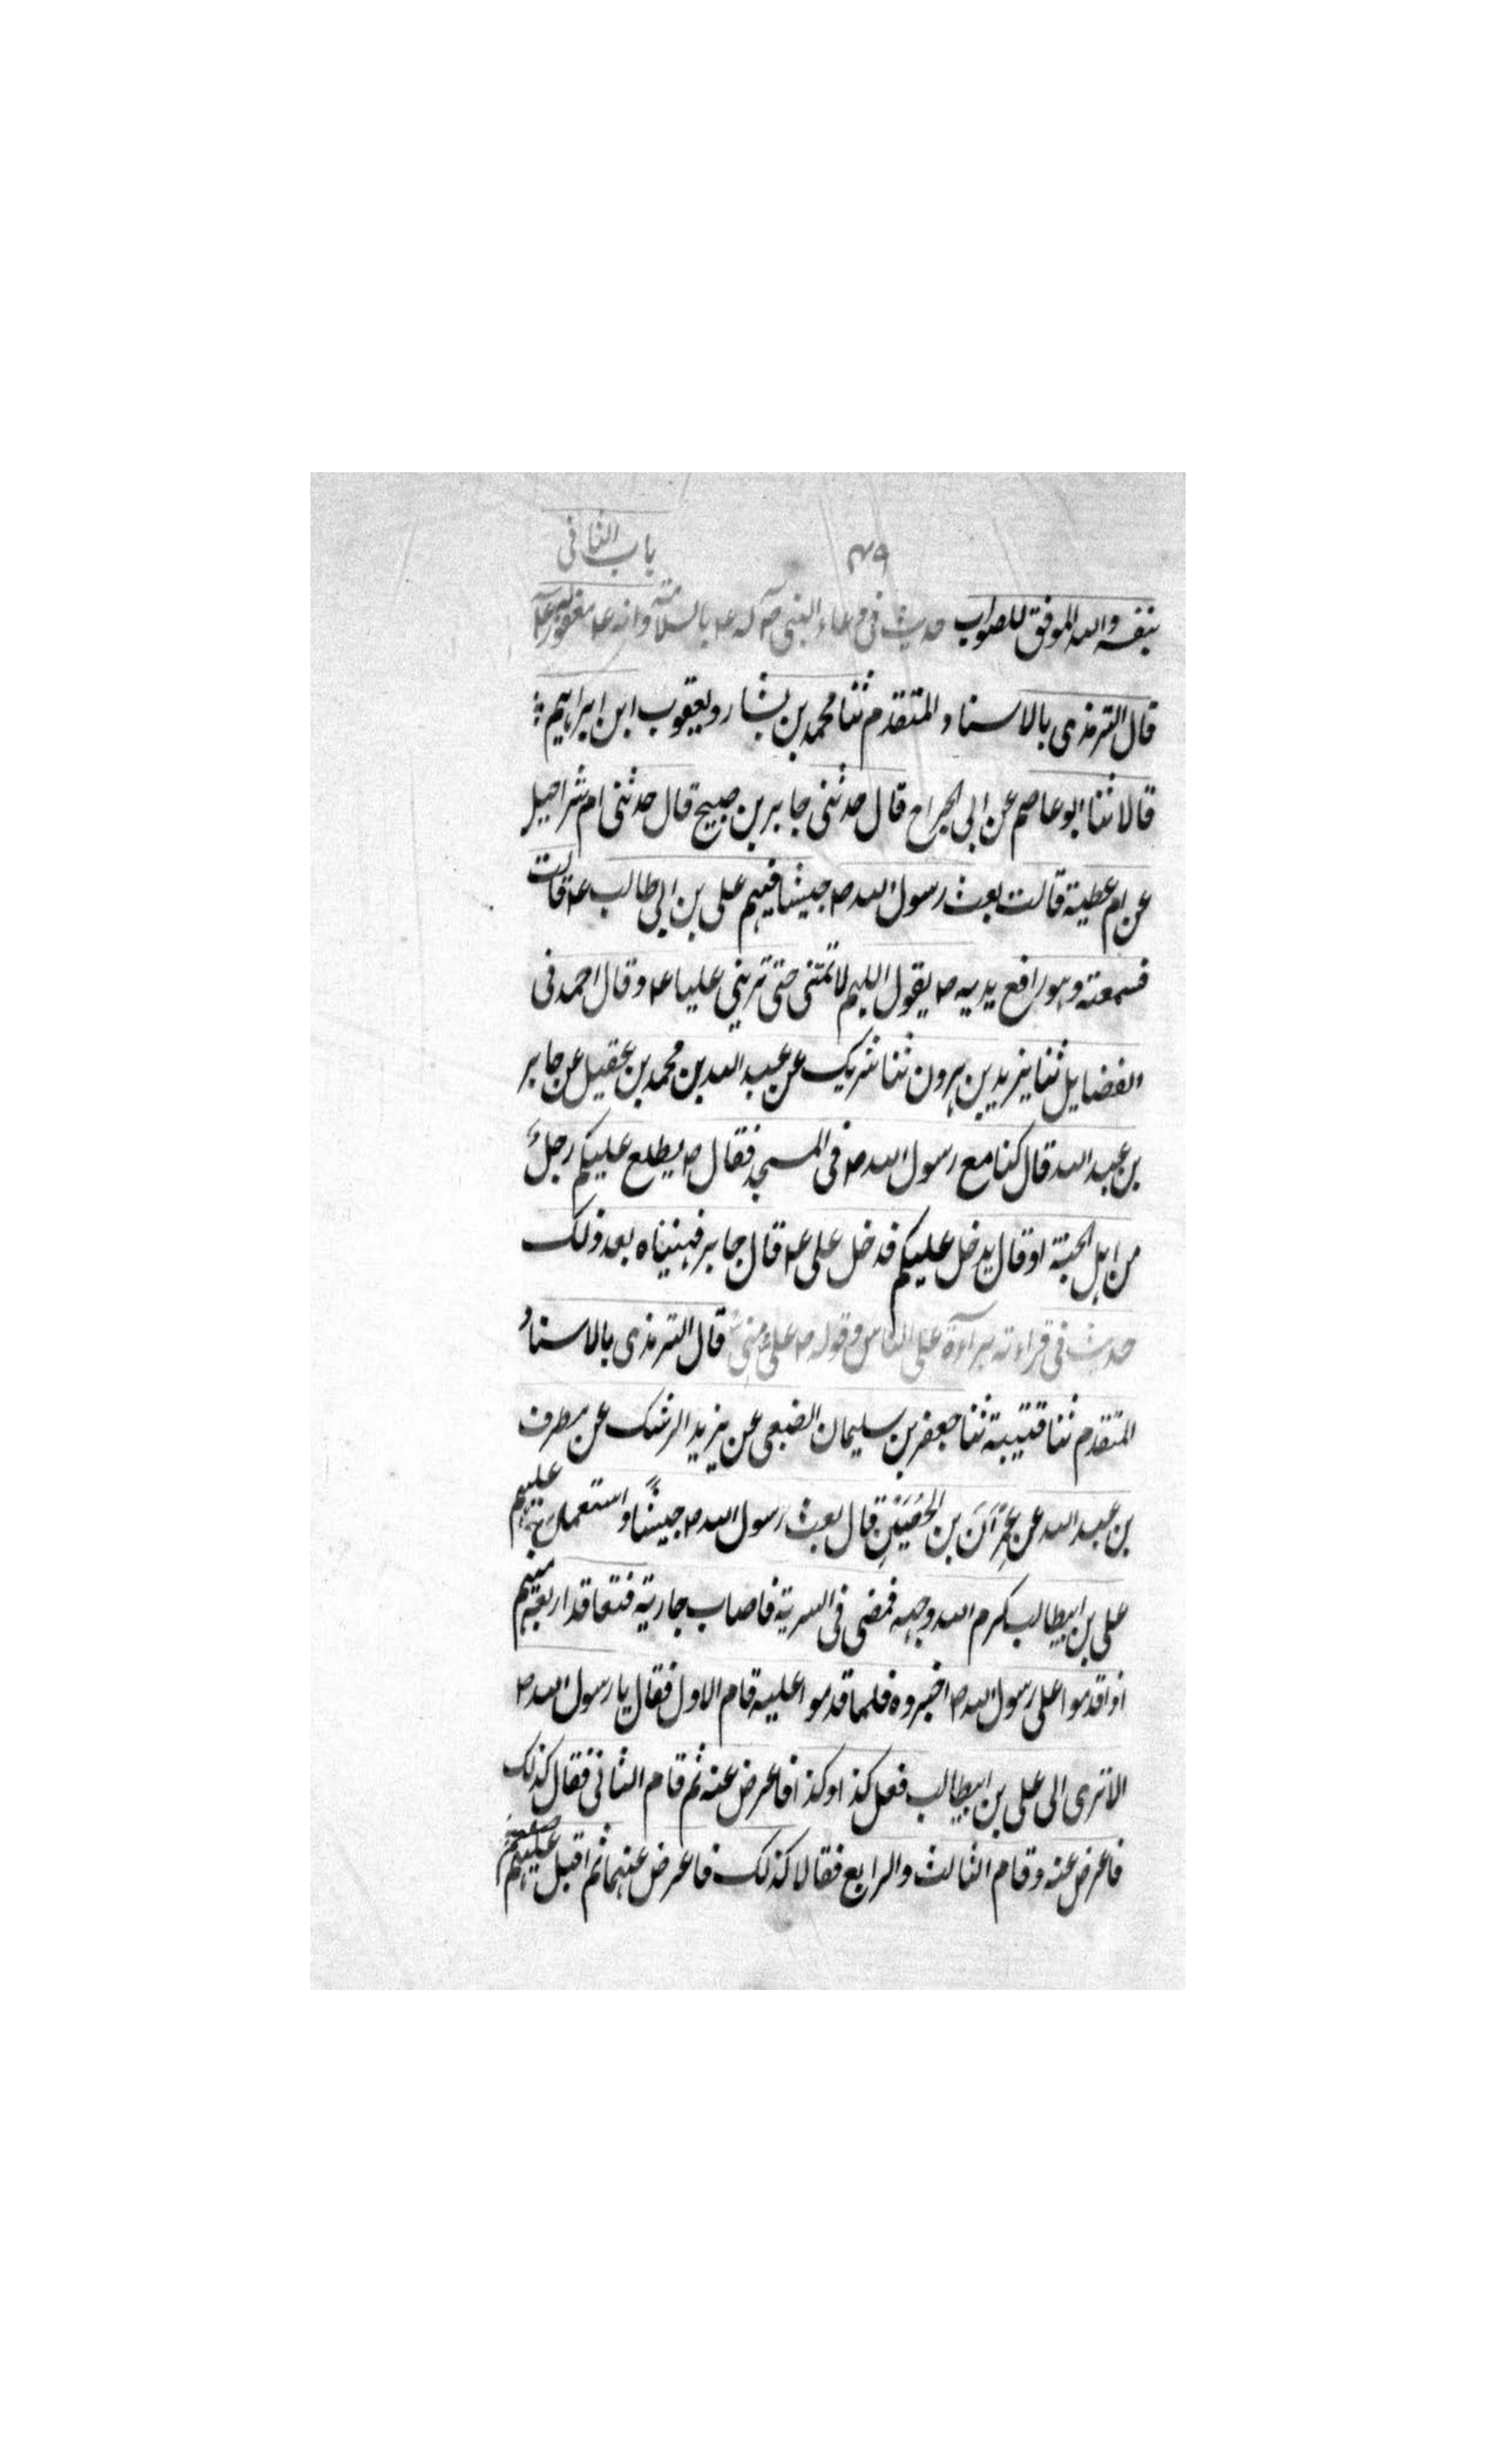 باب الثانی
۴۹
بنفسه والله الموفق للصواب حدیث فی دعاء النبی ص له ع بالسلامة وانه ع مغفور له
قال الترمذی بالاسناد المتقدم ثنا محمد بن بشار ویعقوب ابن ابراهیم
قالا ثنا ابو عاصم عن ابی الجراح قال حدثنی جابر بن صبیح قال حدثنی ام شراحیل
عن ام عطیة قالت بعث رسول الله ص جیشا فیهم علی بن ابی طالب ع قالت
فسمعته وهو رافع یدیه ص یقول اللهم لا تمتنی حتی ترینی علیا ع وقال احمد فی
الفضایل ثنا یزید بن هرون ثنا شریک عن عبد الله بن محمد بن عقیل عن جابر
بن عبد الله قال کنا مع رسول الله ص فی المسجد فقال ص یطلع علیکم رجلٌ
من اهل الجنة او قال یدخل علیکم فدخل علی ع قال جابر فهنیناه بعد ذلک
حدیث فی قراءته براءة علی الناس وقوله ص علیٌ منی قال الترمذی بالاسناد
المتقدم ثنا قتیبة ثنا جعفر بن سلیمان الضبعی عن یزید الرشک عن مطرف
بن عبد الله عن عِمْرَانَ بن الحُصَیْنِ قال بعث رسول الله ص جیشًا واستعمل علیهم
علی بن ابیطالب کرم الله وجهه فمضی فی السریة فاصاب جاریة فتعاقد اربعة منهم
اذا قدموا علی رسول الله ص اخبروه فلما قدموا علیه قام الاول فقال یا رسول الله ص
الا تری الی علی بن ابیطالب فعل کذا وکذا فاعرض عنه ثم قام الثانی فقال کذلک
فاعرض عنه وقام الثالث والرابع فقالا کذلک فاعرض عنهما ثم اقبل علیهم